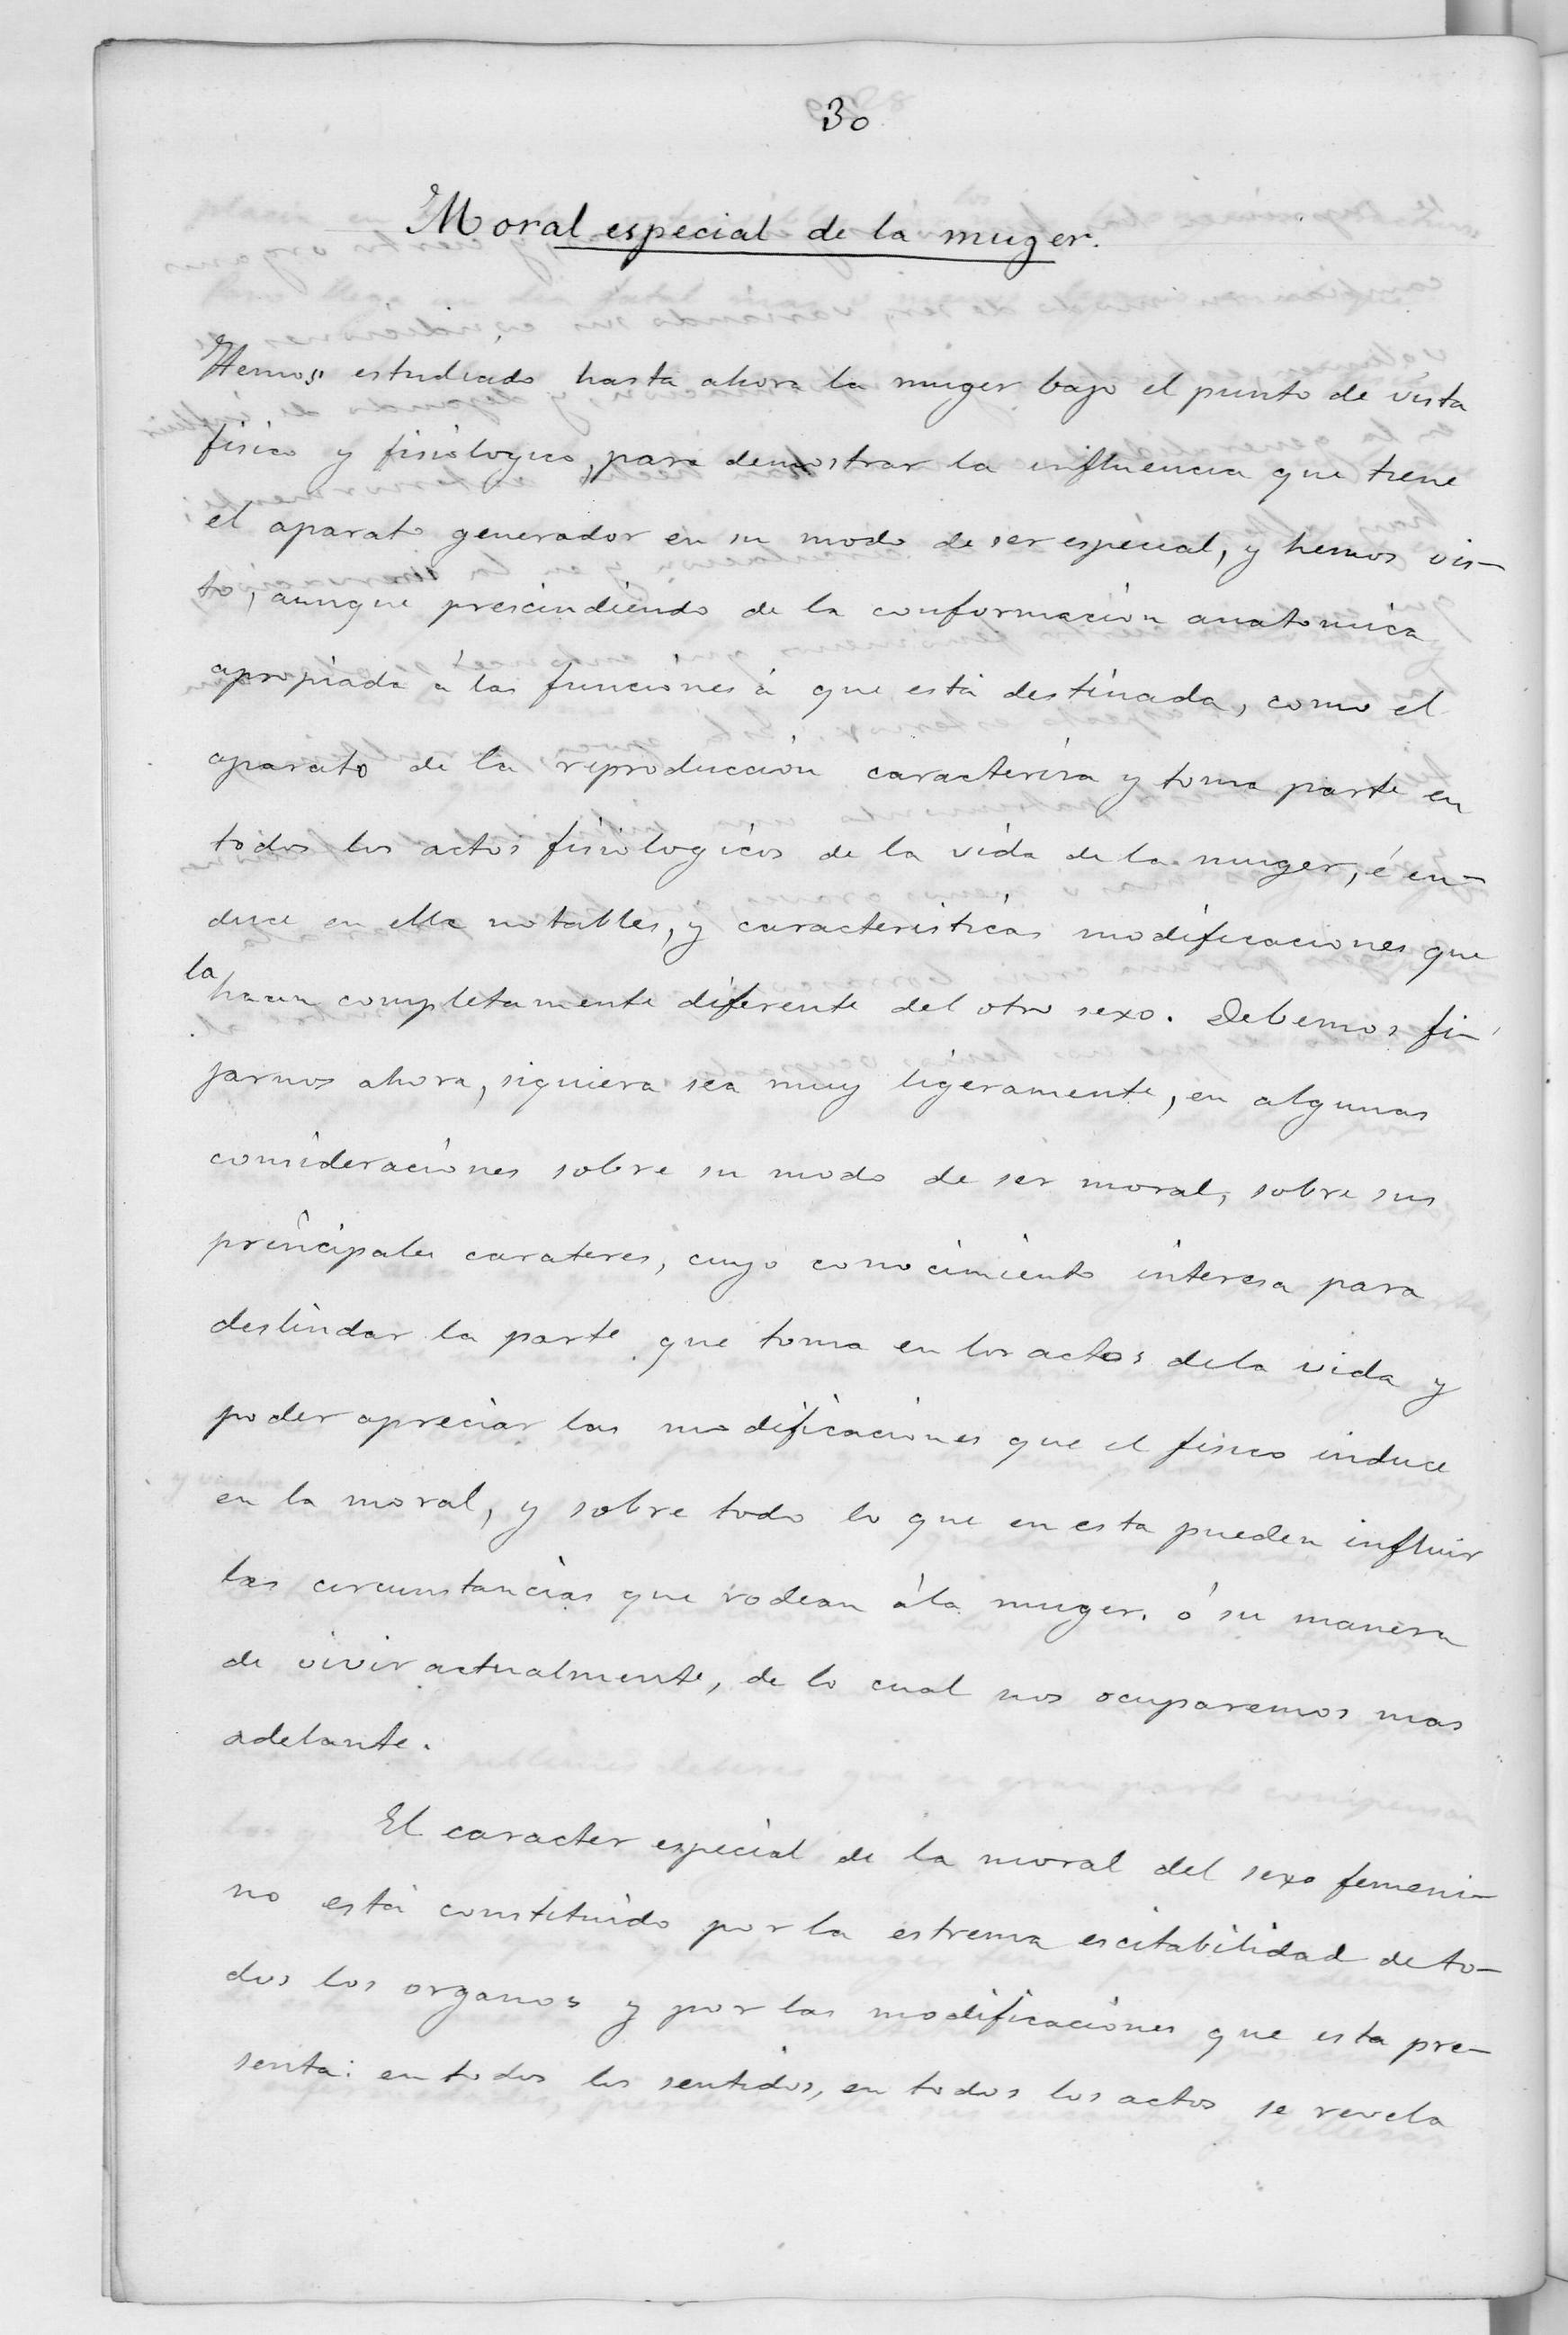 30
Moral especial de la muger.
Hemos estudiado hasta ahora la muger bajo el punto de vista
fisico y fisiologico, para demostrar la influencia que tiene
el aparato generador en su modo de ser especial, y hemos vis-
to, aunque prescindiendo de la conformacion anatomica
apropiada á las funciones á que está destinada, como el
aparato de la reproduccion caracteriza y toma parte en
todos los actos fisiologicos de la vida de la muger, é en-
duce en ella notables, y caracteristicas modificaciones que
la hacen completamente diferente del otro sexo. Debemos fi-
jarnos ahora, siquiera sea muy ligeramente, en algunas
consideraciones sobre su modo de ser moral, sobre sus
principales carateres, cuyo conocimiento interesa para
deslindar la parte que toma en los actos de la vida y
poder apreciar las modificaciones que el fisico induce
en la moral, y sobre todo lo que en esta pueden influir
las circunstancias que rodean á la muger. ó su manera
de vivir actualmente, de lo cual nos ocuparemos mas
adelante.
El caracter especial de la moral del sexo femeni-
no está constituido por la estrema escitabilidad de to-
dos los organos y por las modificaciones que esta pre-
senta: en todos los sentidos, en todos los actos se revela